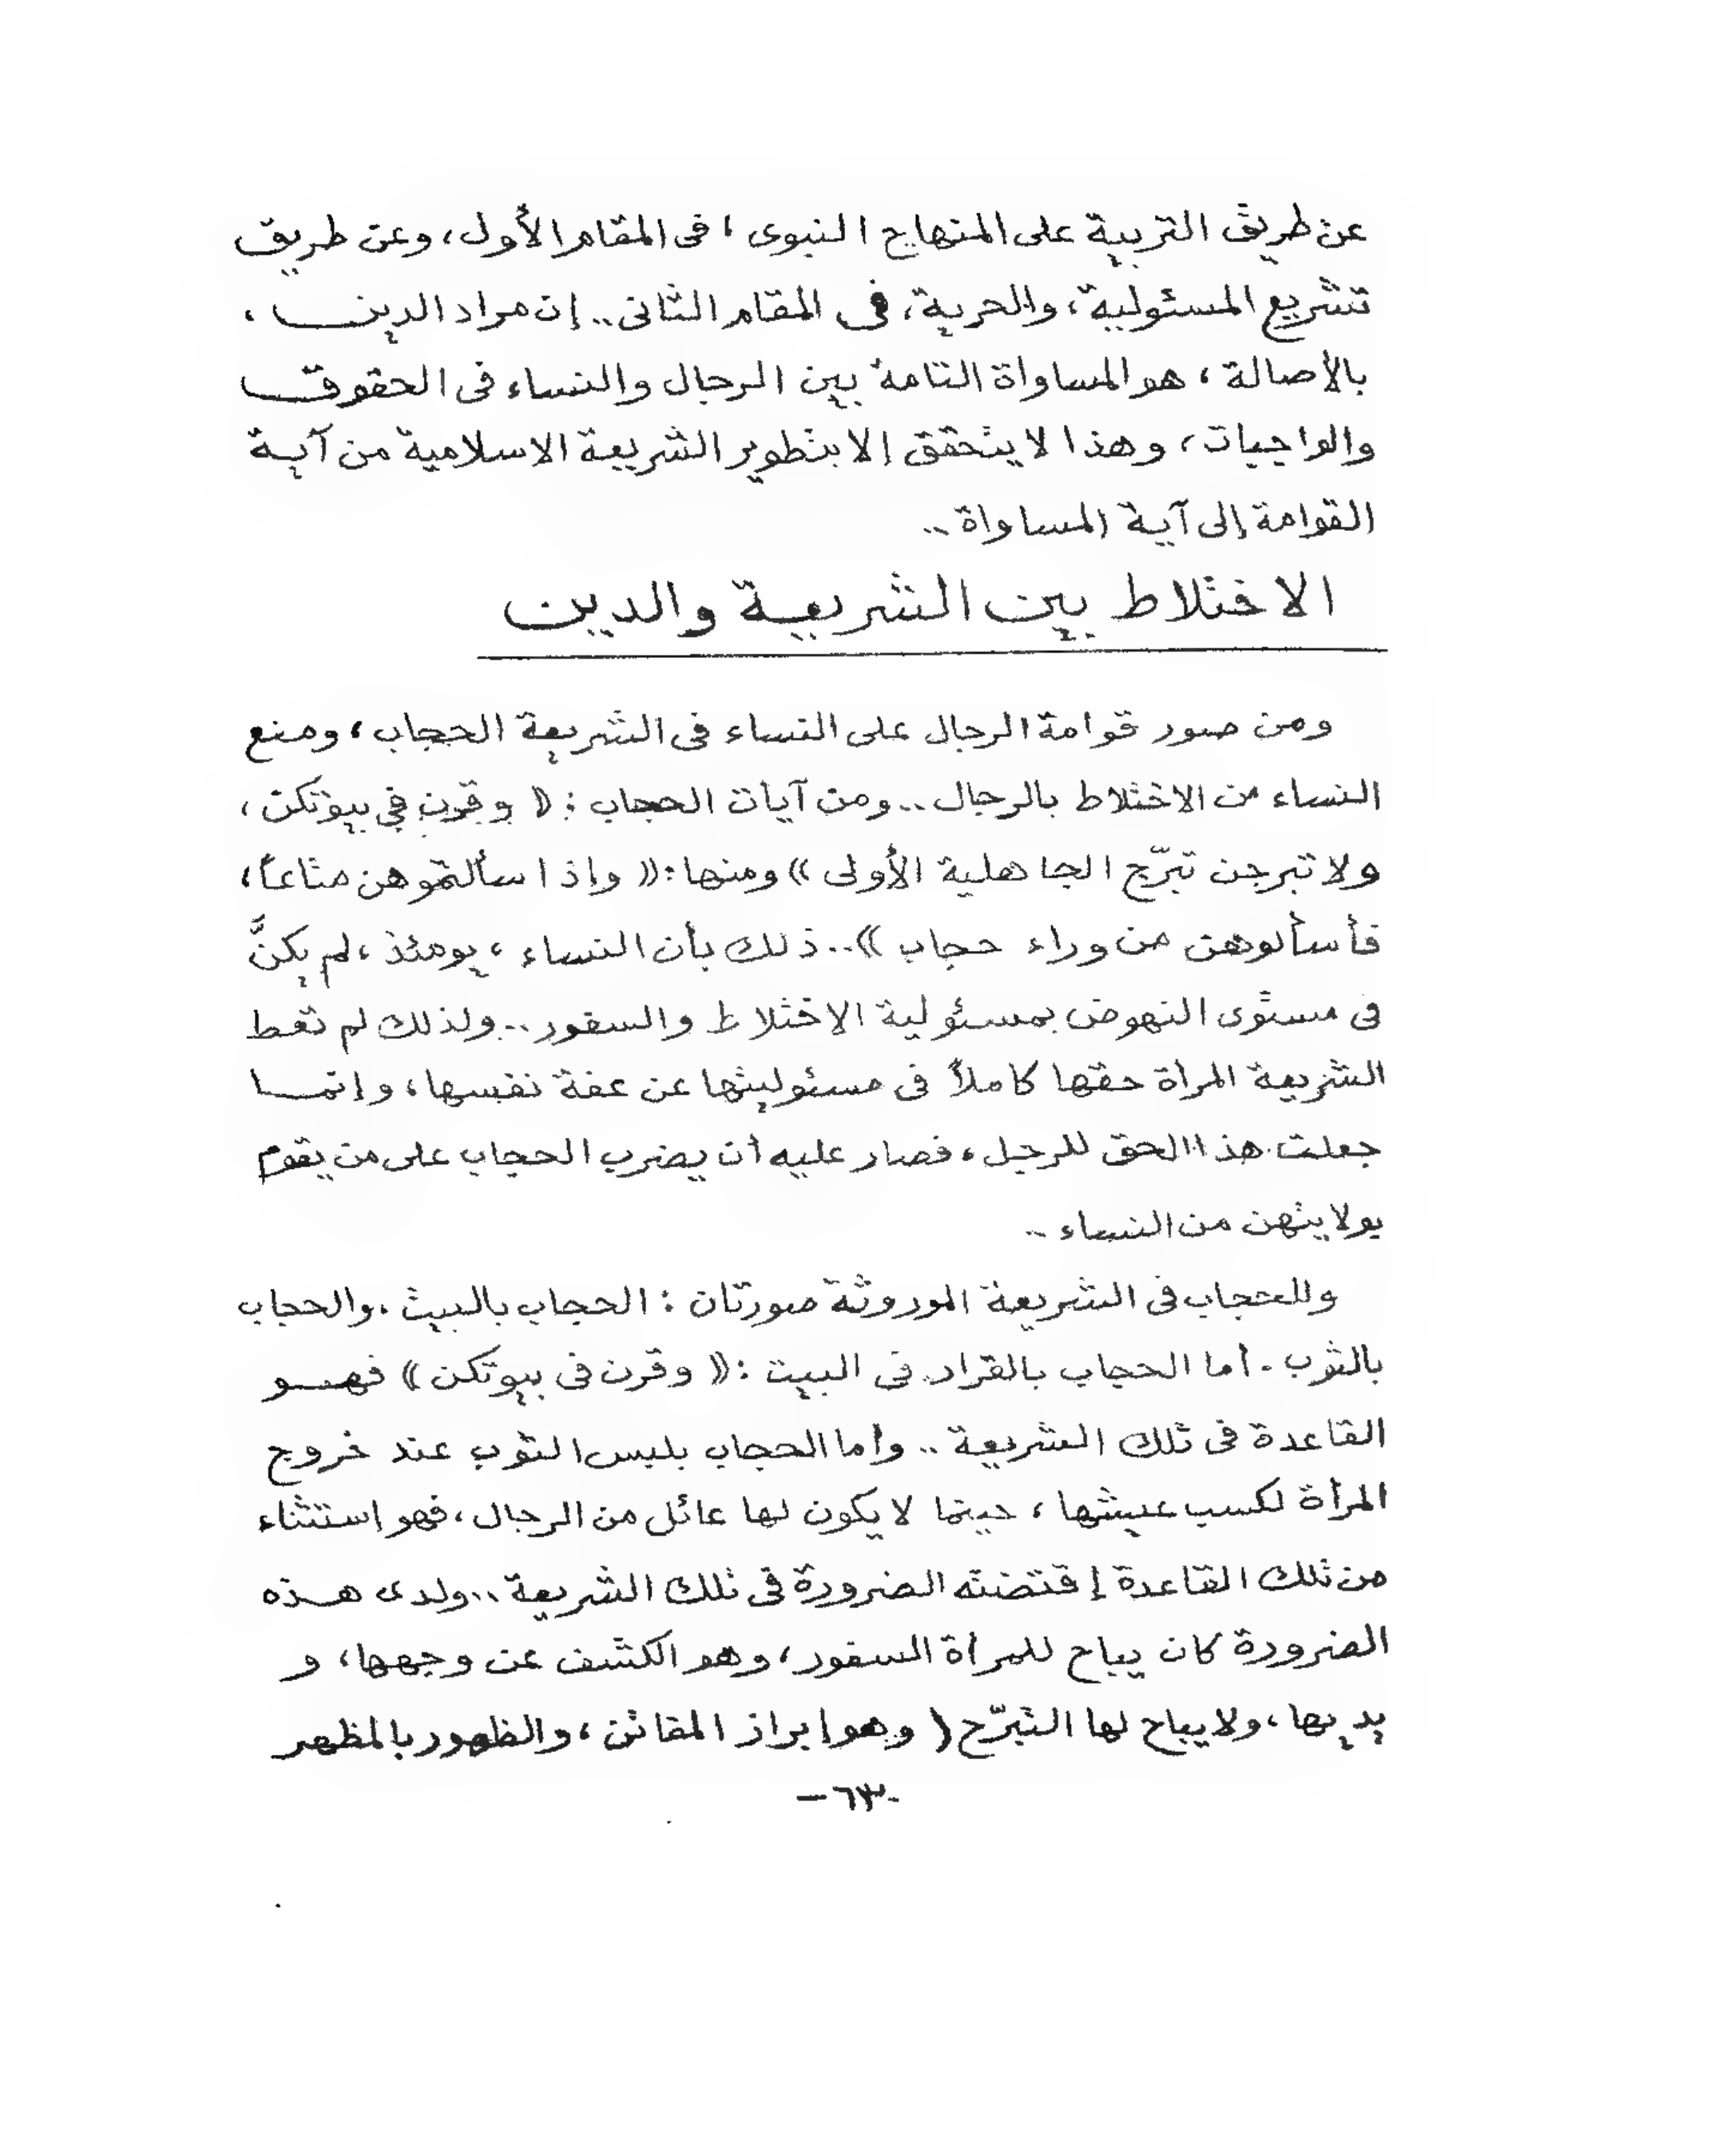 عن طريق التربية على المنهاج النبوى ، فى المقام الأول ، وعن طريق
تشريع المسئولية ، والحرية ، فى المقام الثانى .. إن مراد الدين ،
بالأصالة ، هو المساواة التامة بين الرجال والنساء فى الحقوق
والواجبات ، وهذا لا يتحقق إلا بتطوير الشريعة الاسلامية من آية
القوامة إلى آية المساواة ..
الاختلاط بين الشريعة والدين
ومن صور قوامة الرجال على النساء فى الشريعة الحجاب ، ومنع
النساء من الاختلاط بالرجال .. ومن آيات الحجاب : (( وقرن في بيوتكن ،
ولا تبرجن تبرّج الجاهلية الأولى )) ومنها : (( وإذا سألتموهن متاعاً ،
فأسألوهن من وراء حجاب )) .. ذلك بأن النساء ، يومئذ ، لم يكنَّ
فى مستوى النهوض بمسئولية الاختلاط والسفور .. ولذلك لم تعط
الشريعة المرأة حقها كاملاً فى مسئوليتها عن عفة نفسها ، وإنما
جعلت هذا الحق للرجل ، فصار عليه أن يضرب الحجاب على من يقوم
بولايتهن من النساء ..
وللحجاب فى الشريعة الموروثة صورتان : الحجاب بالبيت . والحجاب
بالثوب . أما الحجاب بالقرار فى البيت : (( وقرن فى بيوتكن )) فهو
القاعدة فى تلك الشريعة .. وأما الحجاب بلبس الثوب عند خروج
المرأة لكسب عيشها ، حينما لا يكون لها عائل من الرجال ، فهو استثناء
من تلك القاعدة إقتضته الضرورة فى تلك الشريعة .. ولدى هذه
الضرورة كان يباح للمرأة السفور ، وهو الكشف عن وجهها ، و
يديها ، ولا يباح لها التبرّج ( وهو إبراز المفاتن ، والظهور بالمظهر
-٦٣-